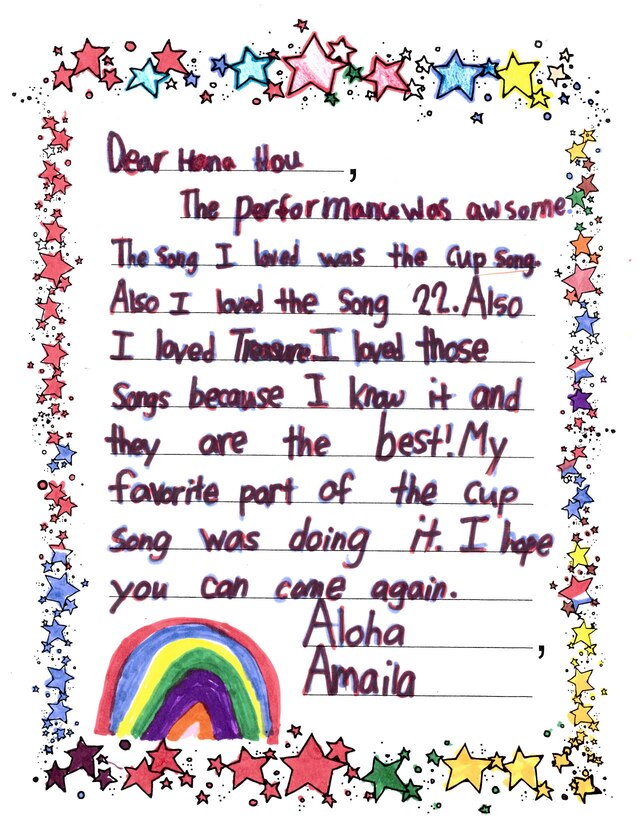 Dear Hana Hou,
The performance was awsome.
The song I loved was the cup song.
Also I loved the Song 22. Also
I loved Treasure. I loved those
songs because I know it and
they are the best! My
favorite part of the cup
song was doing it. I hope
you can come again.
Aloha,
Amaila